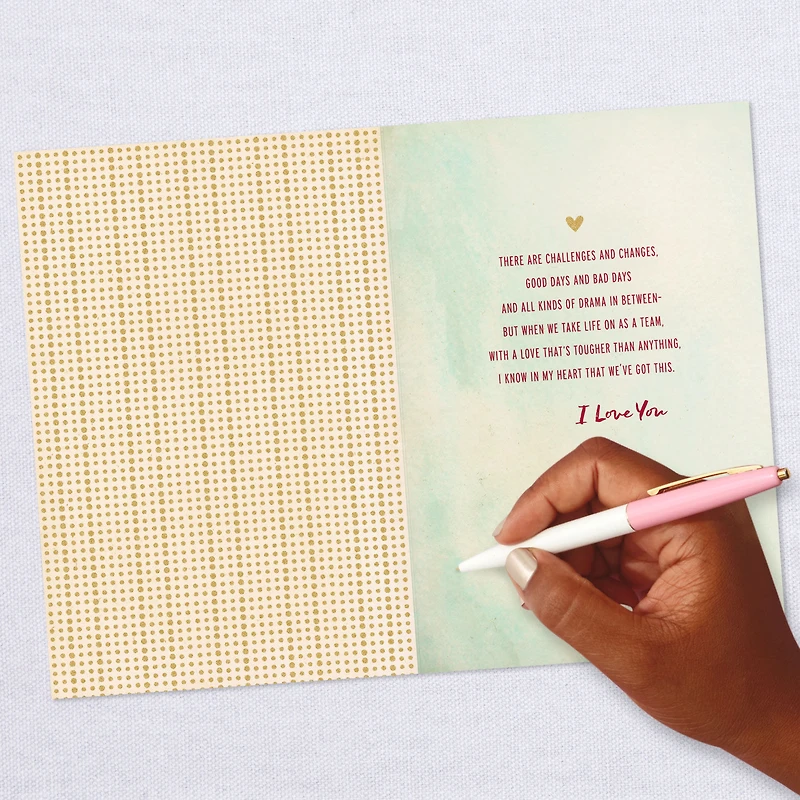 THERE ARE CHALLENGES AND CHANGES,
GOOD DAYS AND BAD DAYS
AND ALL KINDS OF DRAMA IN BETWEEN-
BUT WHEN WE TAKE LIFE ON AS A TEAM,
WITH A LOVE THAT'S TOUGHER THAN ANYTHING,
I KNOW IN MY HEART THAT WE'VE GOT THIS.
I Love You